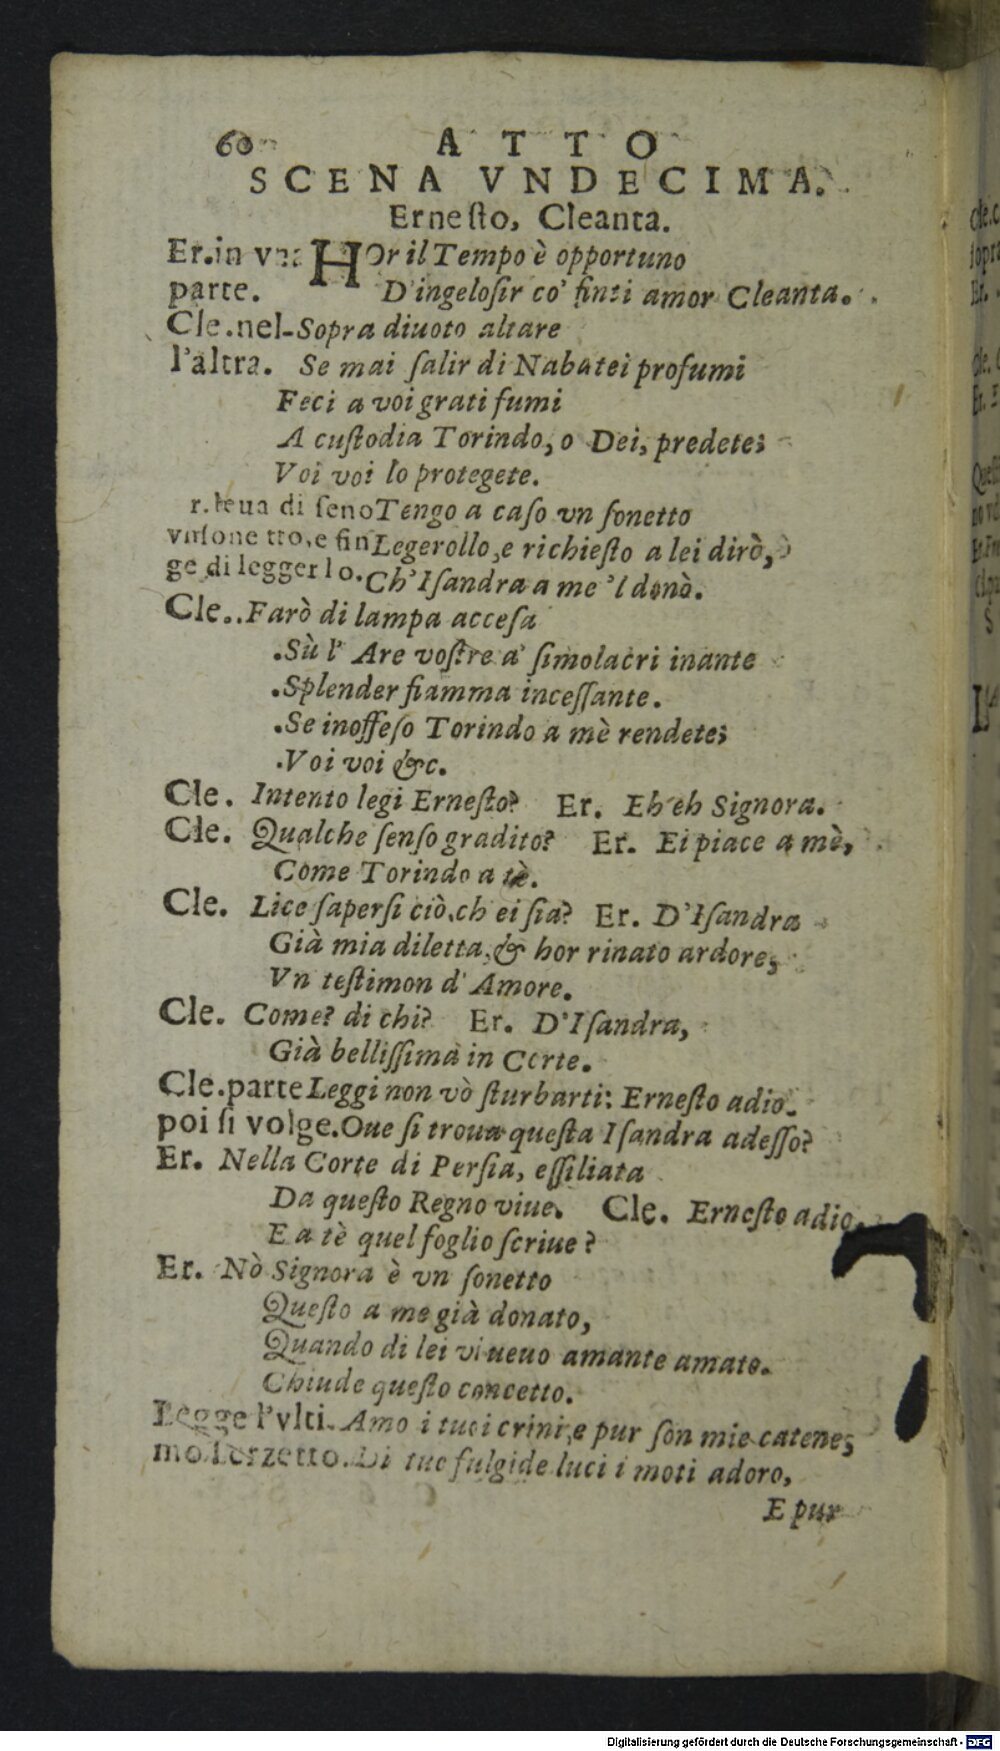 60 ATTO
SCENA VNDECIMA.
Erneſto, Cleanta.
Er.in vna HOr il Tempo è opportuno
parte. D'ingeloſir co' finti amor Cleanta.
Cle.nel- Sopra diuoto altare
l'altra. Se mai ſalir di Nabatei profumi
Feci a voi grati fumi
A cuſtodia Torindo, o Dei, predete;
Voi voi lo protegete.
r.leua di ſeno Tengo a caſo vn ſonetto
vnſone tto,e fin Legerollo,e richieſto a lei dirò,
ge di legger lo. Ch'Iſandra a me 'l donò.
Cle.. Farò di lampa acceſa
.Sù l' Are voſtre a' ſimolacri inante
.Splender fiamma inceſſante.
.Se inoffeſo Torindo a mè rendete;
.Voi voi &c.
Cle. Intento legi Erneſto? Er. Eh eh Signora.
Cle. Qualche ſenſo gradito? Er. Ei piace a mè,
Come Torindo a tè.
Cle. Lice ſaperſi ciò,ch ei ſia? Er. D'Iſandra
Già mia diletta,& hor rinato ardore,
Vn teſtimon d'Amore.
Cle. Come? di chi? Er. D'Iſandra,
Già belliſſima in Corte.
Cle.parte Leggi non vò ſturbarti: Erneſto adio.
poi ſi volge. Oue ſi troua queſta Iſandra adeſſo?
Er. Nella Corte di Perſia, eſſiliata
Da queſto Regno viue. Cle. Erneſto adio.
E a tè quel foglio ſcriue?
Er. Nò Signora è vn ſonetto
Queſto a me già donato,
Quando di lei viueuo amante amato.
Chiude queſto concetto.
Legge l'vlti- Amo i tuoi crini,e pur ſon mie catene;
mo Terzetto. Di tue fulgide luci i moti adoro,
E pur
Digitalisierung gefördert durch die Deutsche Forschungsgemeinschaft - DFG